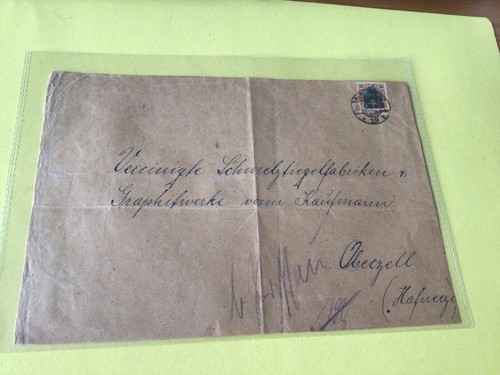 Vereinigte Schmelztiegelfabriken &
Graphitwerke vorm Kaufmann
Obernzell
b/Passau
(Hafnerze